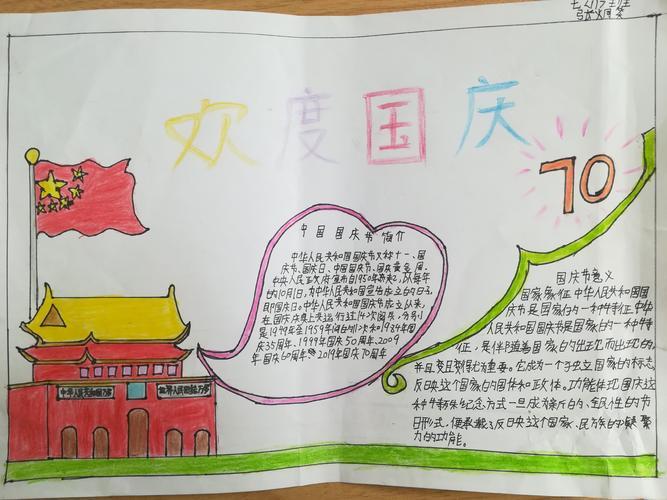 欢度国庆
70
中国国庆节简介
中华人民共和国国庆节又称十一、国
庆节、国庆日、中国国庆节、国庆黄金周。
中央人民政府宣布自1950年起，以每年
的10月1日，为中华人民共和国宣告成立的日子，
即国庆日。中华人民共和国国庆节成立以来，
在国庆庆典上共进行过14次阅兵，分别
是1949年至1959年间的11次和1984年国
庆35周年、1999年国庆50周年、2009
年国庆60周年、2019年国庆70周年
国庆节意义
国家象征 中华人民共和国国
庆节是国家的一种特征 中华
人民共和国国庆节是国家的一种特
征，是伴随着国家的出现而出现的，
并且变得尤为重要。它成为一个独立国家的标志，
反映这个国家的国体和政体。功能体现国庆这
种特殊纪念方式一旦成为新的、全民性的节
日形式，便承载了反映这个国家、民族的凝聚
力的功能。
中华人民共和国万岁
世界人民大团结万岁